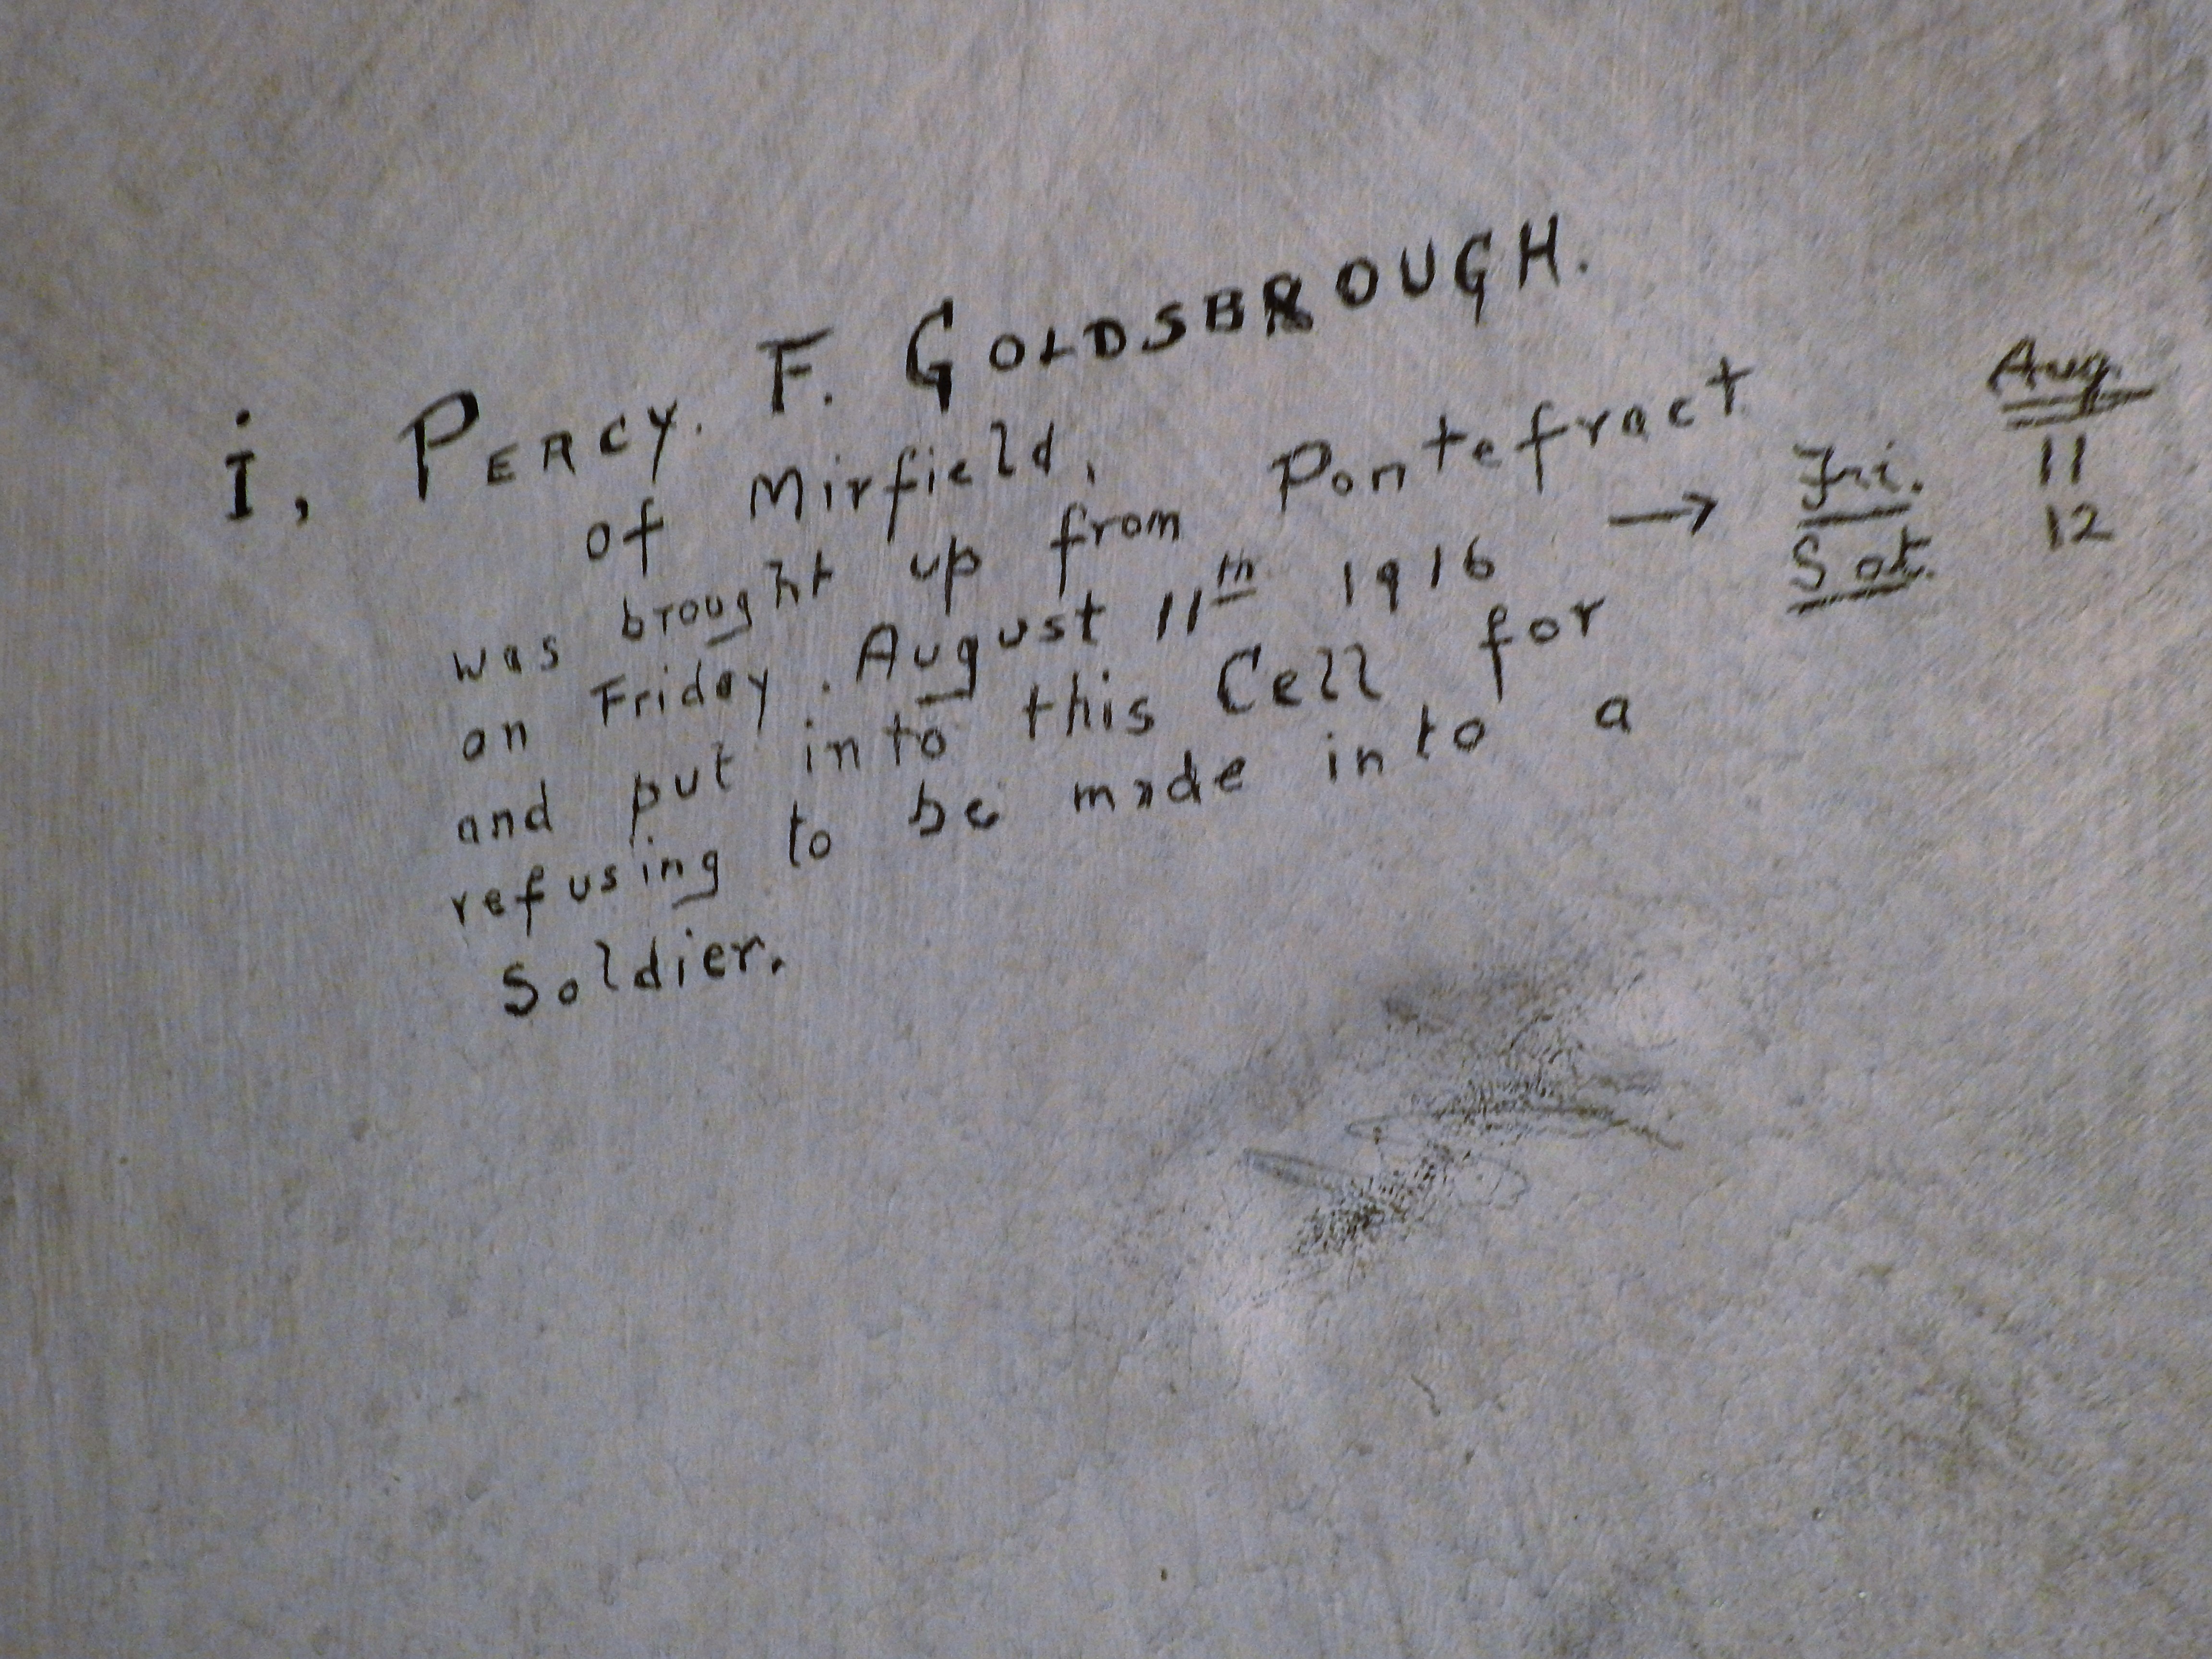 I, PERCY. F. GOLDSBROUGH.
of Mirfield.
was brought up from Pontefract
on Friday. August 11th 1916
and put into this Cell for
refusing to be made into a
Soldier.
→ Aug.
Fri. 11
Sat. 12